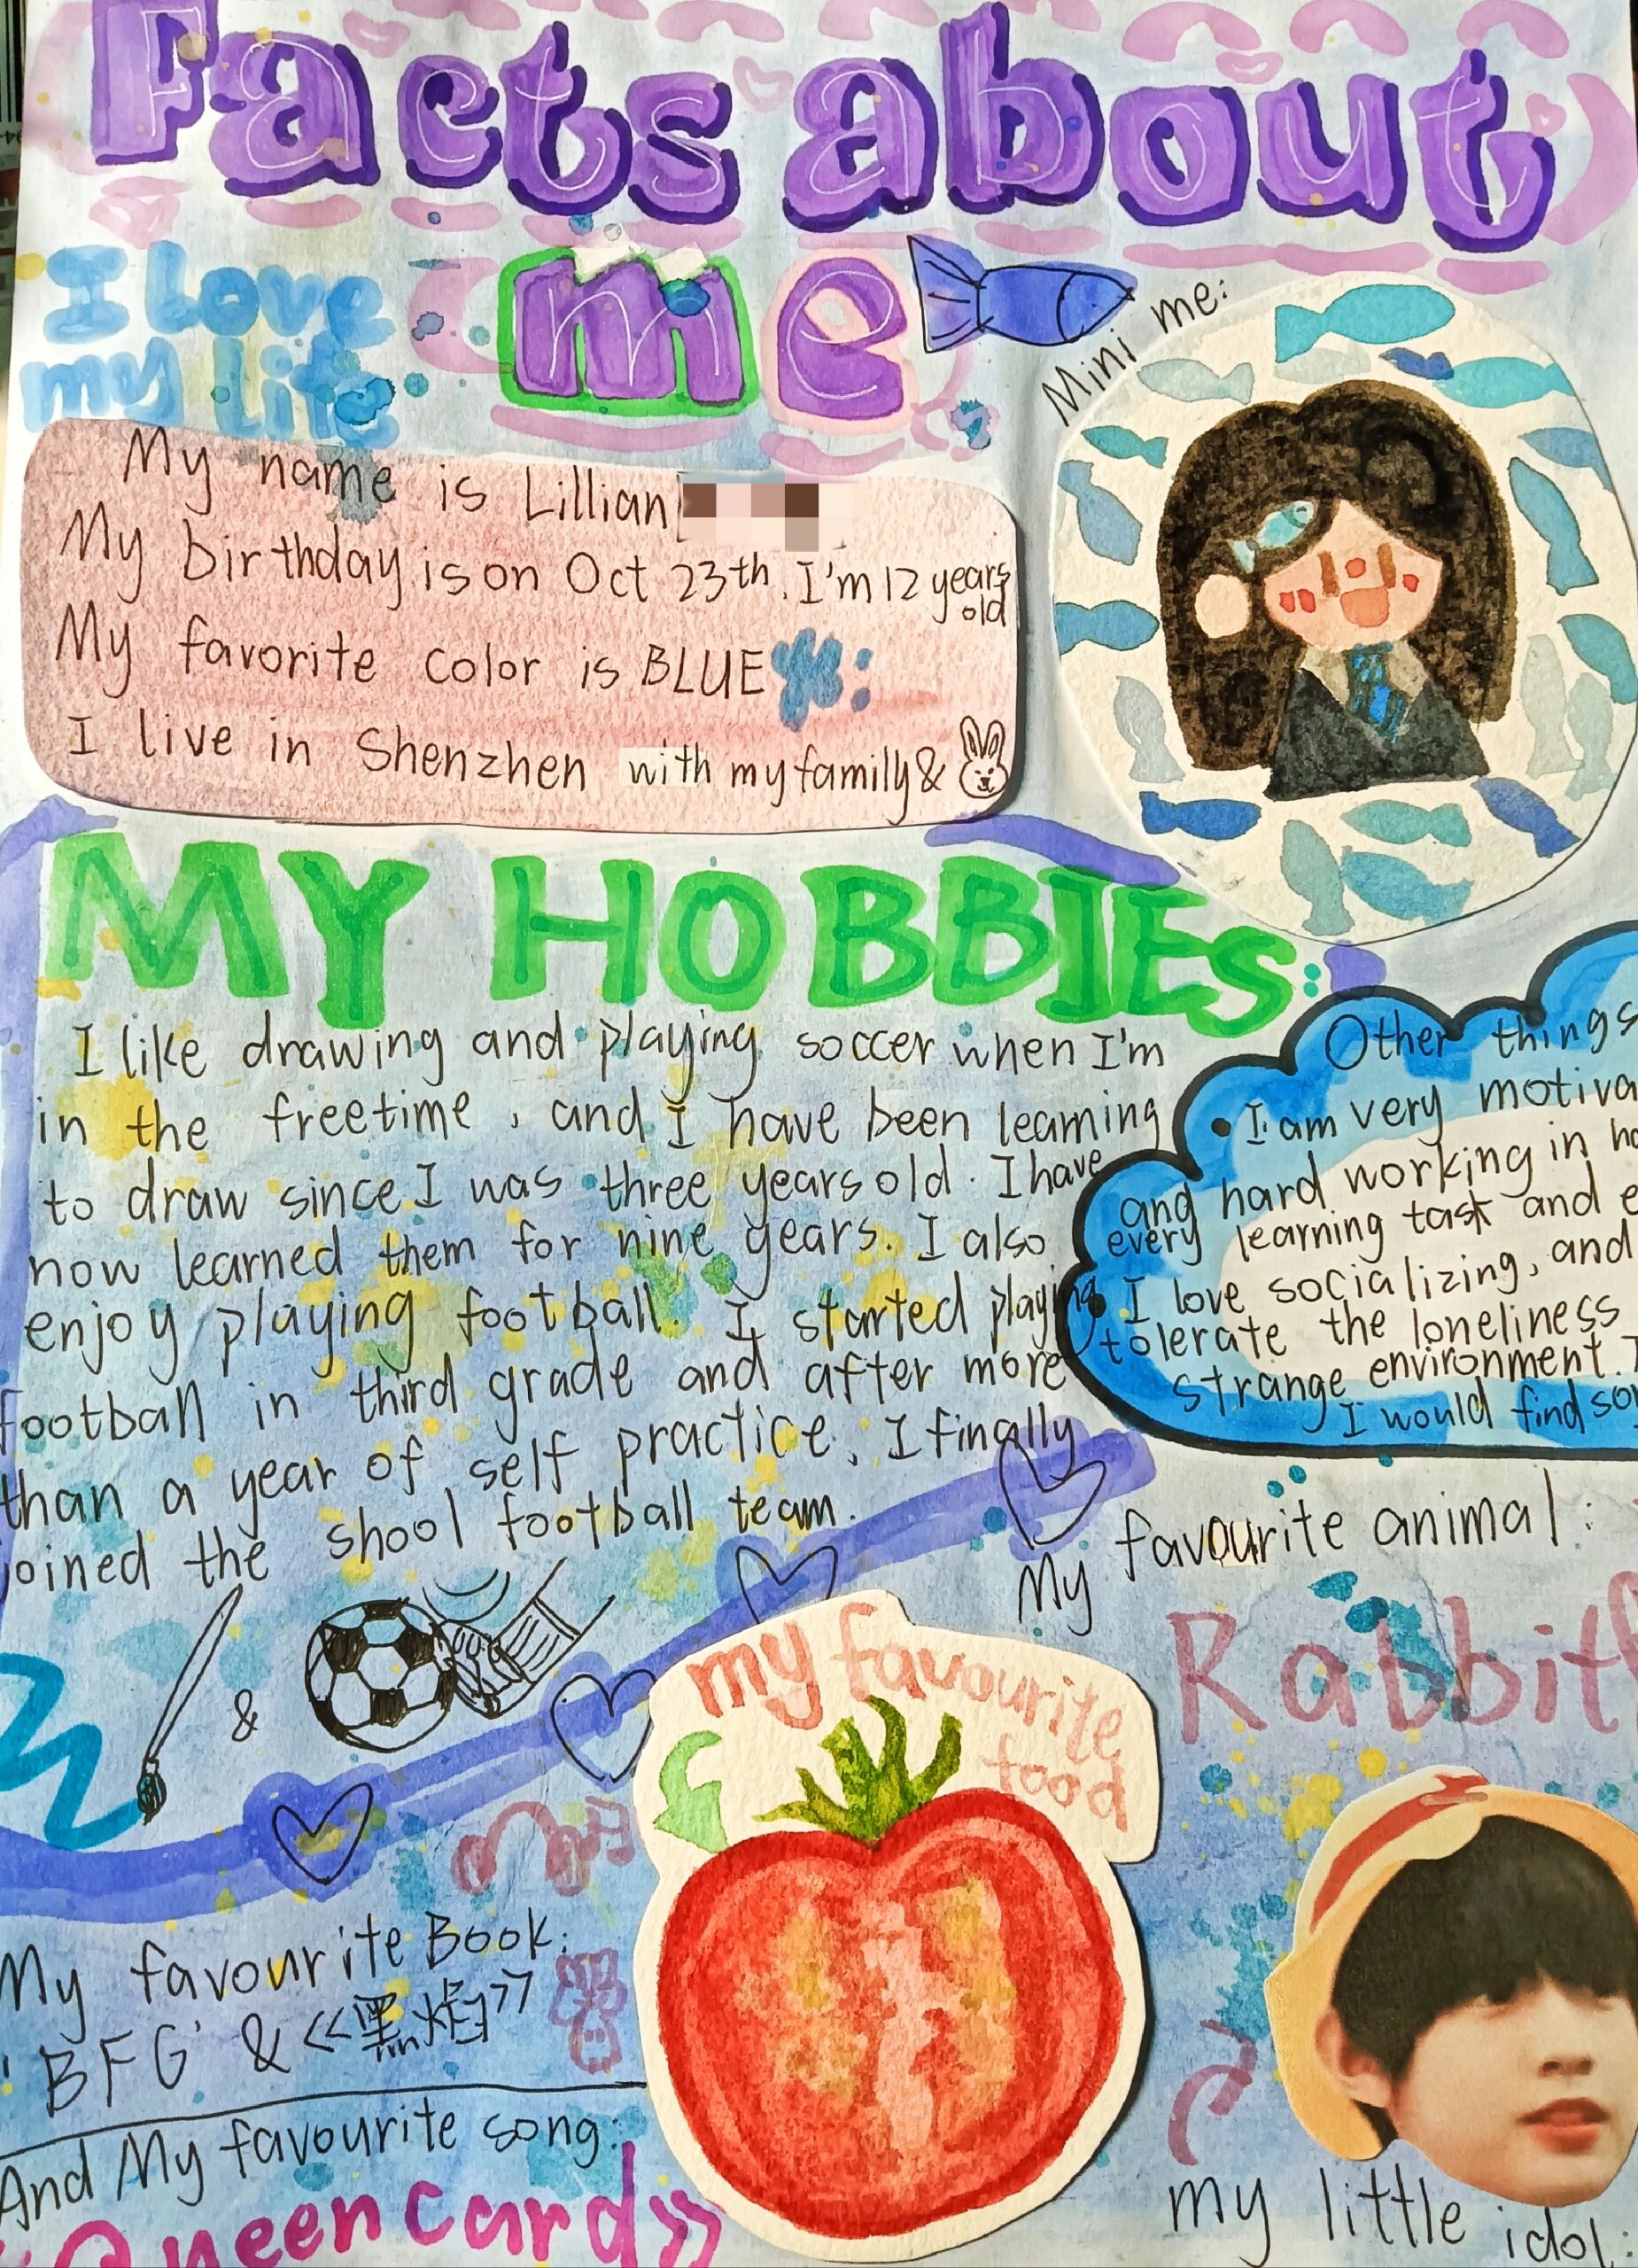 Facts about
me
I love
my life
Mini me:
My name is Lillian
My birthday is on Oct 23th. I'm 12 years
old
My favorite color is BLUE
I live in Shenzhen with my family &
MY HOBBIES:
I like drawing and playing soccer when I'm
in the freetime, and I have been learning
to draw since I was three years old. I have
now learned them for nine years. I also
enjoy playing football. I started playing
football in third grade and after more
than a year of self practice, I finally
joined the shool football team.
&
Other things
• I am very
and hard working in
every learning task and
• I love socializing, and
tolerate the loneliness
strange environment.
I would find
My favourite animal:
Rabbit
my favourite
food
My favourite Book:
'BFG' & 《黑焰》
And My favourite song:
Queencard》
my little idol: